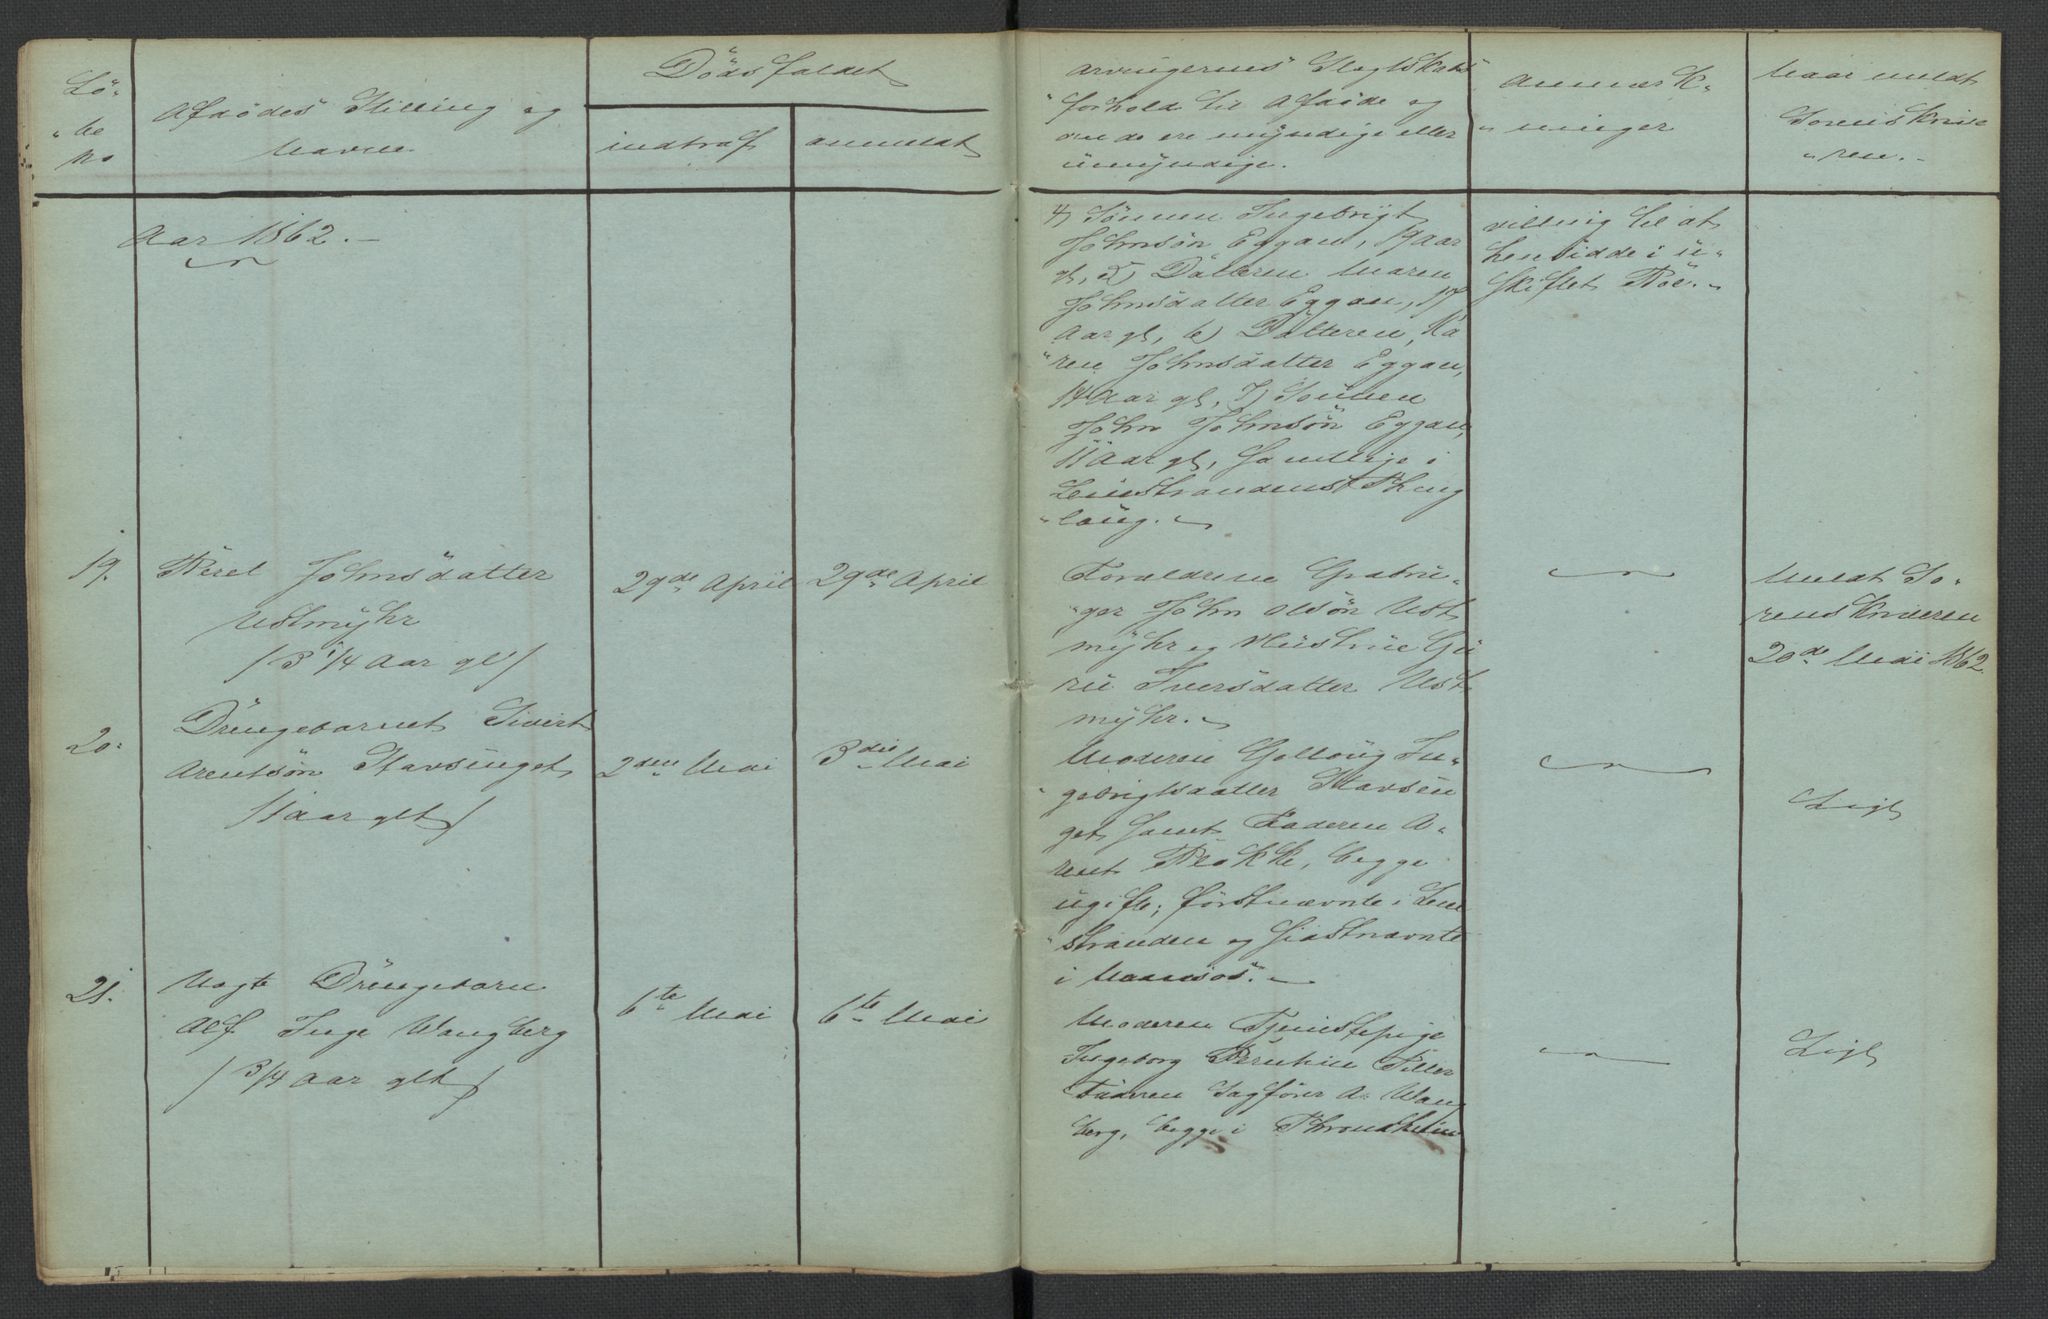 Lö-
"be
No
Afdödes Stilling og
Navn.
Dödsfaldet
indtraf
anmeldt
Arvingernes Slegtskabs
"forhold til Afdöde og
om de ere myndige eller
umyndige.
Anmærk-
"ninger
Naar meldt
Sorenskrive
"ren.-
Aar 1862.-
4) Sönnen Ingebrigt
Johnsön Eggan, 19 Aar
gl, 5) Datteren Maren
Johnsdatter Eggan, 17
Aar gl, 6) Datteren, Ka
"ren Johnsdatter Eggan,
14 Aar gl, 7) Sönnen
John Johnsön Eggan,
11 Aar gl, samtlige i
Leinstrandens Thing
"laug.-
villig til at
hensidde i u-
skiftet Boe.-
19.
Beret Johnsdatter
Ustmyhr
/3 1/4 Aar gl/
29de April
29de April
Forældrene Grubru-
"ger John Olsön Ust
myhr og Hustrue Gu
ru Iversdatter Ust
myhr.-
Meldt So-
renskriveren
20de Mai 1862
20.
Drengebarnet Sivert
Arentsön Stavsinget
/1 Aar glt/
2den Mai
3die Mai
Moderen Golloug In-
"gebrigtsdatter Stavsin
get samt Faderen A-
rent Blokke, begge
ugifte; förstnævnte i Lein
"stranden og sidstnævnte
i Namsos.-
Ligt
21.
Uægte Drengebarn
Alf Inge Wangberg
/3/4 Aar glt/
6te Mai
6te Mai
Moderen Tjenestepige
Ingeborg Tiller
Faderen Sagförer A. Wang
berg, begge i Throndhjem
Ligt